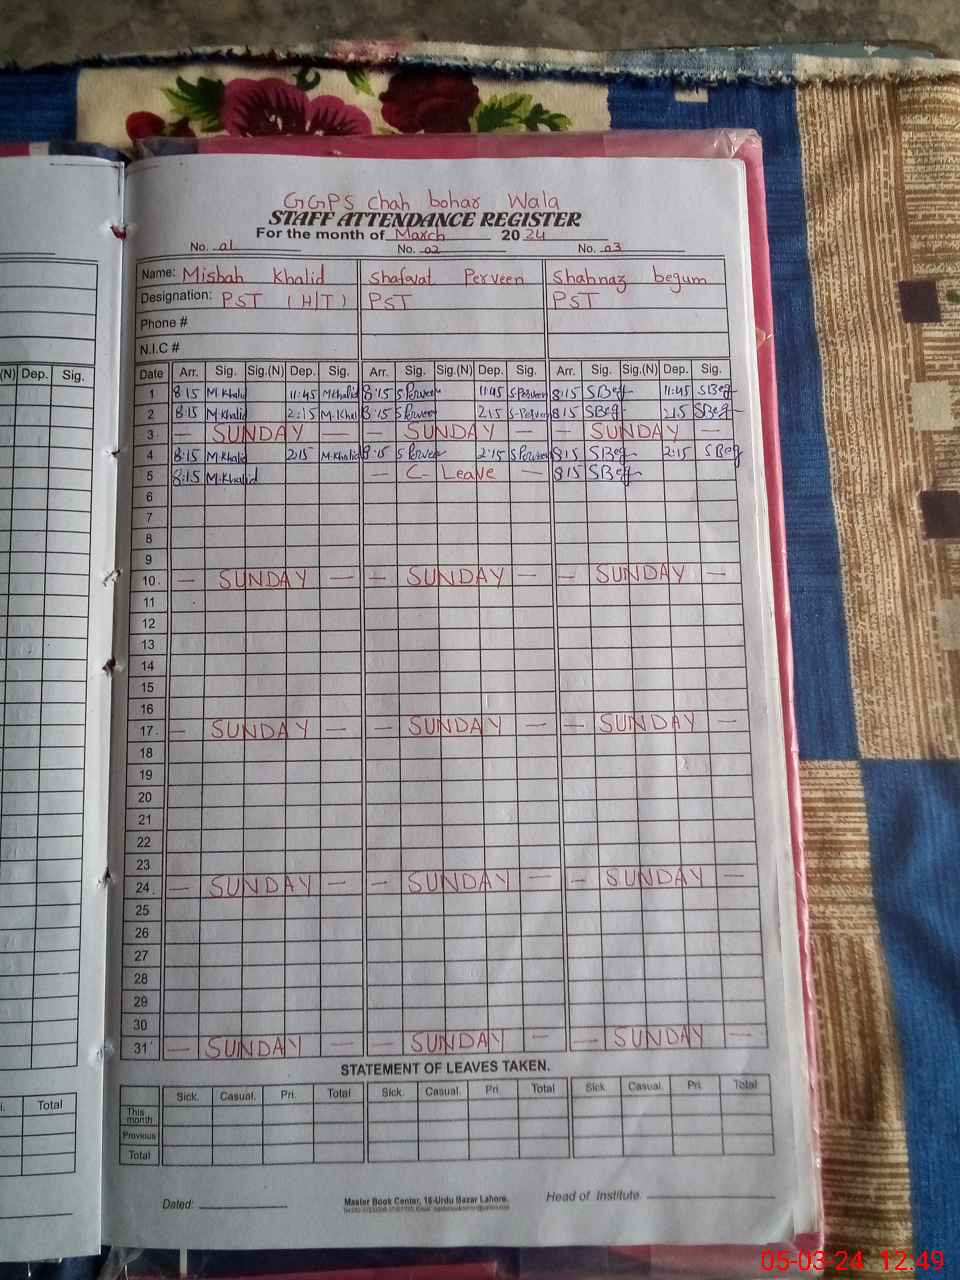 GGPS chah bohar Wala
STAFF ATTENDANCE REGISTER
For the month of March 2024
No. 01 No. 02 No. 03
Name: Misbah Khalid Shafaat Perveen Shahnaz begum
Designation: PST (H/T) PST PST
Phone #
N.I.C #
(N) Dep. Sig. Date Arr. Sig. Sig.(N) Dep. Sig. Arr. Sig. Sig.(N) Dep. Sig. Arr. Sig. Sig.(N) Dep. Sig.
1 8:15 M.Khalid 11:45 M.Khalid 8:15 S Perveen 11:45 S.Perveen 8:15 SBeg 11:45 SBeg
2 8:15 M.Khalid 2:15 M.Khal 8:15 S Perveen 2:15 S-Perveen 8:15 SBeg 2:15 SBeg
3 — SUNDAY — — SUNDAY — — SUNDAY —
4 8:15 M.Khalid 2:15 M.Khalid 8:15 S Perveen 2:15 S Perveen 8:15 SBeg 2:15 SBeg
5 8:15 M.Khalid — C- Leave — 8:15 SBeg
6
7
8
9
10 — SUNDAY — — SUNDAY — — SUNDAY —
11
12
13
14
15
16
17 — SUNDAY — — SUNDAY — — SUNDAY —
18
19
20
21
22
23
24 — SUNDAY — — SUNDAY — — SUNDAY —
25
26
27
28
29
30
31 — SUNDAY — — SUNDAY — — SUNDAY —
STATEMENT OF LEAVES TAKEN.
Total Sick. Casual. Pri. Total Sick. Casual. Pri. Total Sick. Casual. Pri. Total
This month
Previous
Total
Dated: Master Book Center, 16-Urdu Bazar Lahore. Head of Institute
05-03-24 12:49